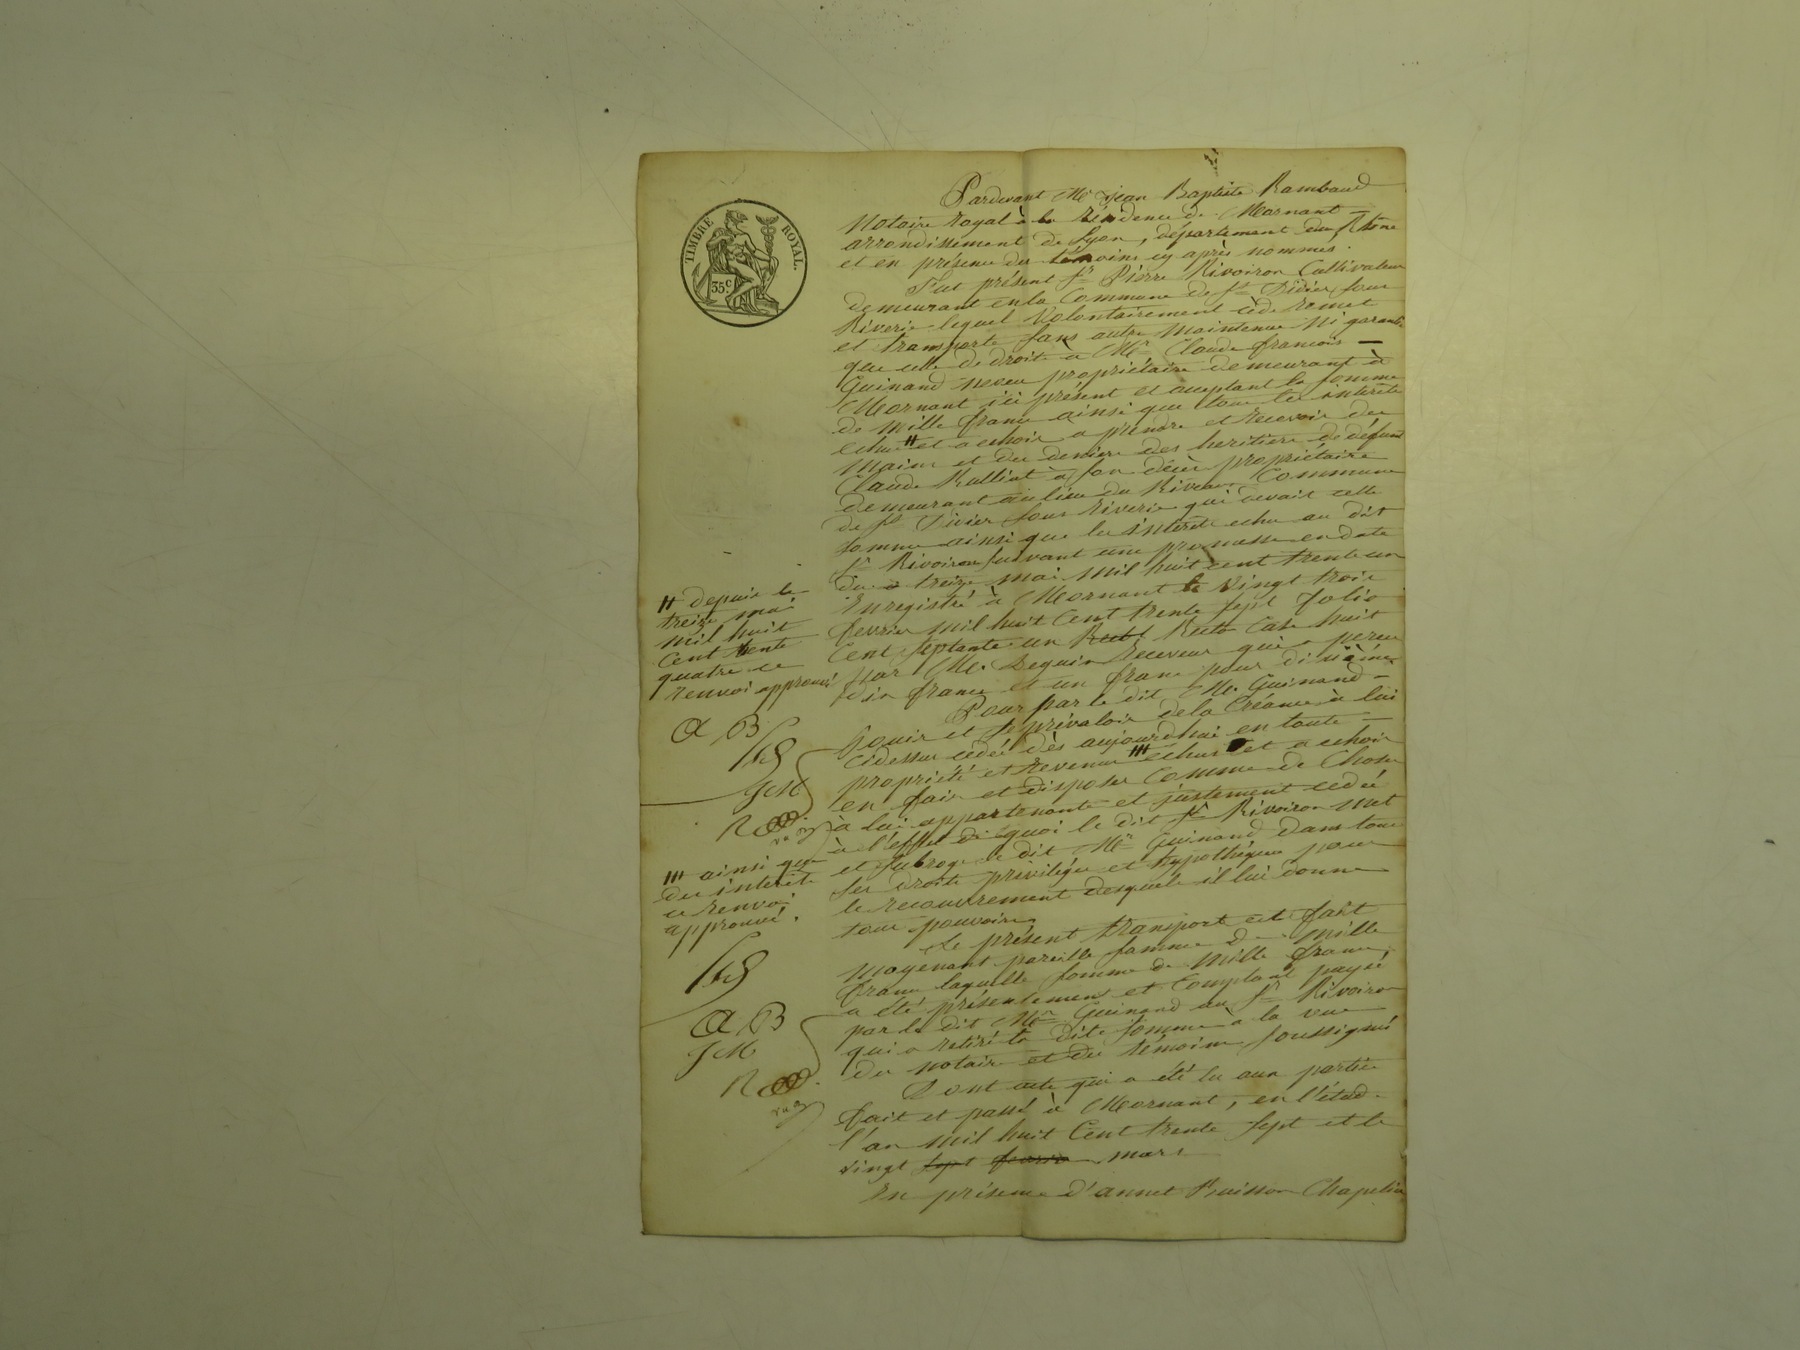 TIMBRE ROYAL.
35c
Pardevant Me Jean Baptiste Rambaud
Notaire Royal à la Résidence de Mornant
arrondissement de Lyon, département du Rhône
et en présence des témoins cy après nommés.
Fut présent Sr Pierre Rivoiron Cultivateur
demeurant en la Commune de St Didier sous
Riverie lequel Volontairement cède remet
et transporte sans autre maintenue ni garantie
que celle de droit à Mr Claude françois —
Guinand neveu propriétaire demeurant à
Mornant ici présent et acceptant la somme
de mille francs ainsi que tous les intérêts
echus # et a echoir a prendre et recevoir des
mains et des deniers des heritiers de défunt
Claude Rulliat à son décès propriétaire
demeurant au lieu du Riveau Commune
de St Didier sous Riverie qui devait cette
somme ainsi que les intérêts echus au dit
Sr Rivoiron suivant une promesse en date
du treize mai mil huit cent trente un
Enregistré à Mornant le Vingt trois
fevrier mil huit Cent trente sept folio
Cent septante un Recto Case huit
par Me. Deguin Receveur qui a perçu
dix francs et un franc pour dixième
Pour par le dit Mr. Guinand —
Jouir et se prévaloir de la Créance à lui
Cidessus cedée dès aujourdhui en toute —
propriété et revenus ## échus et a echoir
en faire et disposer Comme de Chose
à lui appartenante et justement cedée
à l'effet de quoi le dit Sr Rivoiron met
et subroge le dit Mr Guinand dans tous
ses droits priviléges et hypothéques pour
le recouvrement desquels il lui donne
tous pouvoirs
Le présent transport est fait
moyenant pareille somme de mille
francs laquelle somme de mille francs,
a été présentement et Comptant payée
par le dit Mr Guinand au Sr Rivoiron
qui a retiré la dite somme à la vue
du notaire et des témoins soussignés
Dont acte qui a été lu aux parties
fait et passé à Mornant, en l'étude
l'an mil huit Cent trente sept et le
vingt sept fevrier mars
En présence d'annet Buisson Chapelier
# depuis le
treize mai
mil huit
Cent trente
quatre ce
renvoi approuvé
A B
## ainsi que
des intérêts
ce renvoi
approuvé.
A B